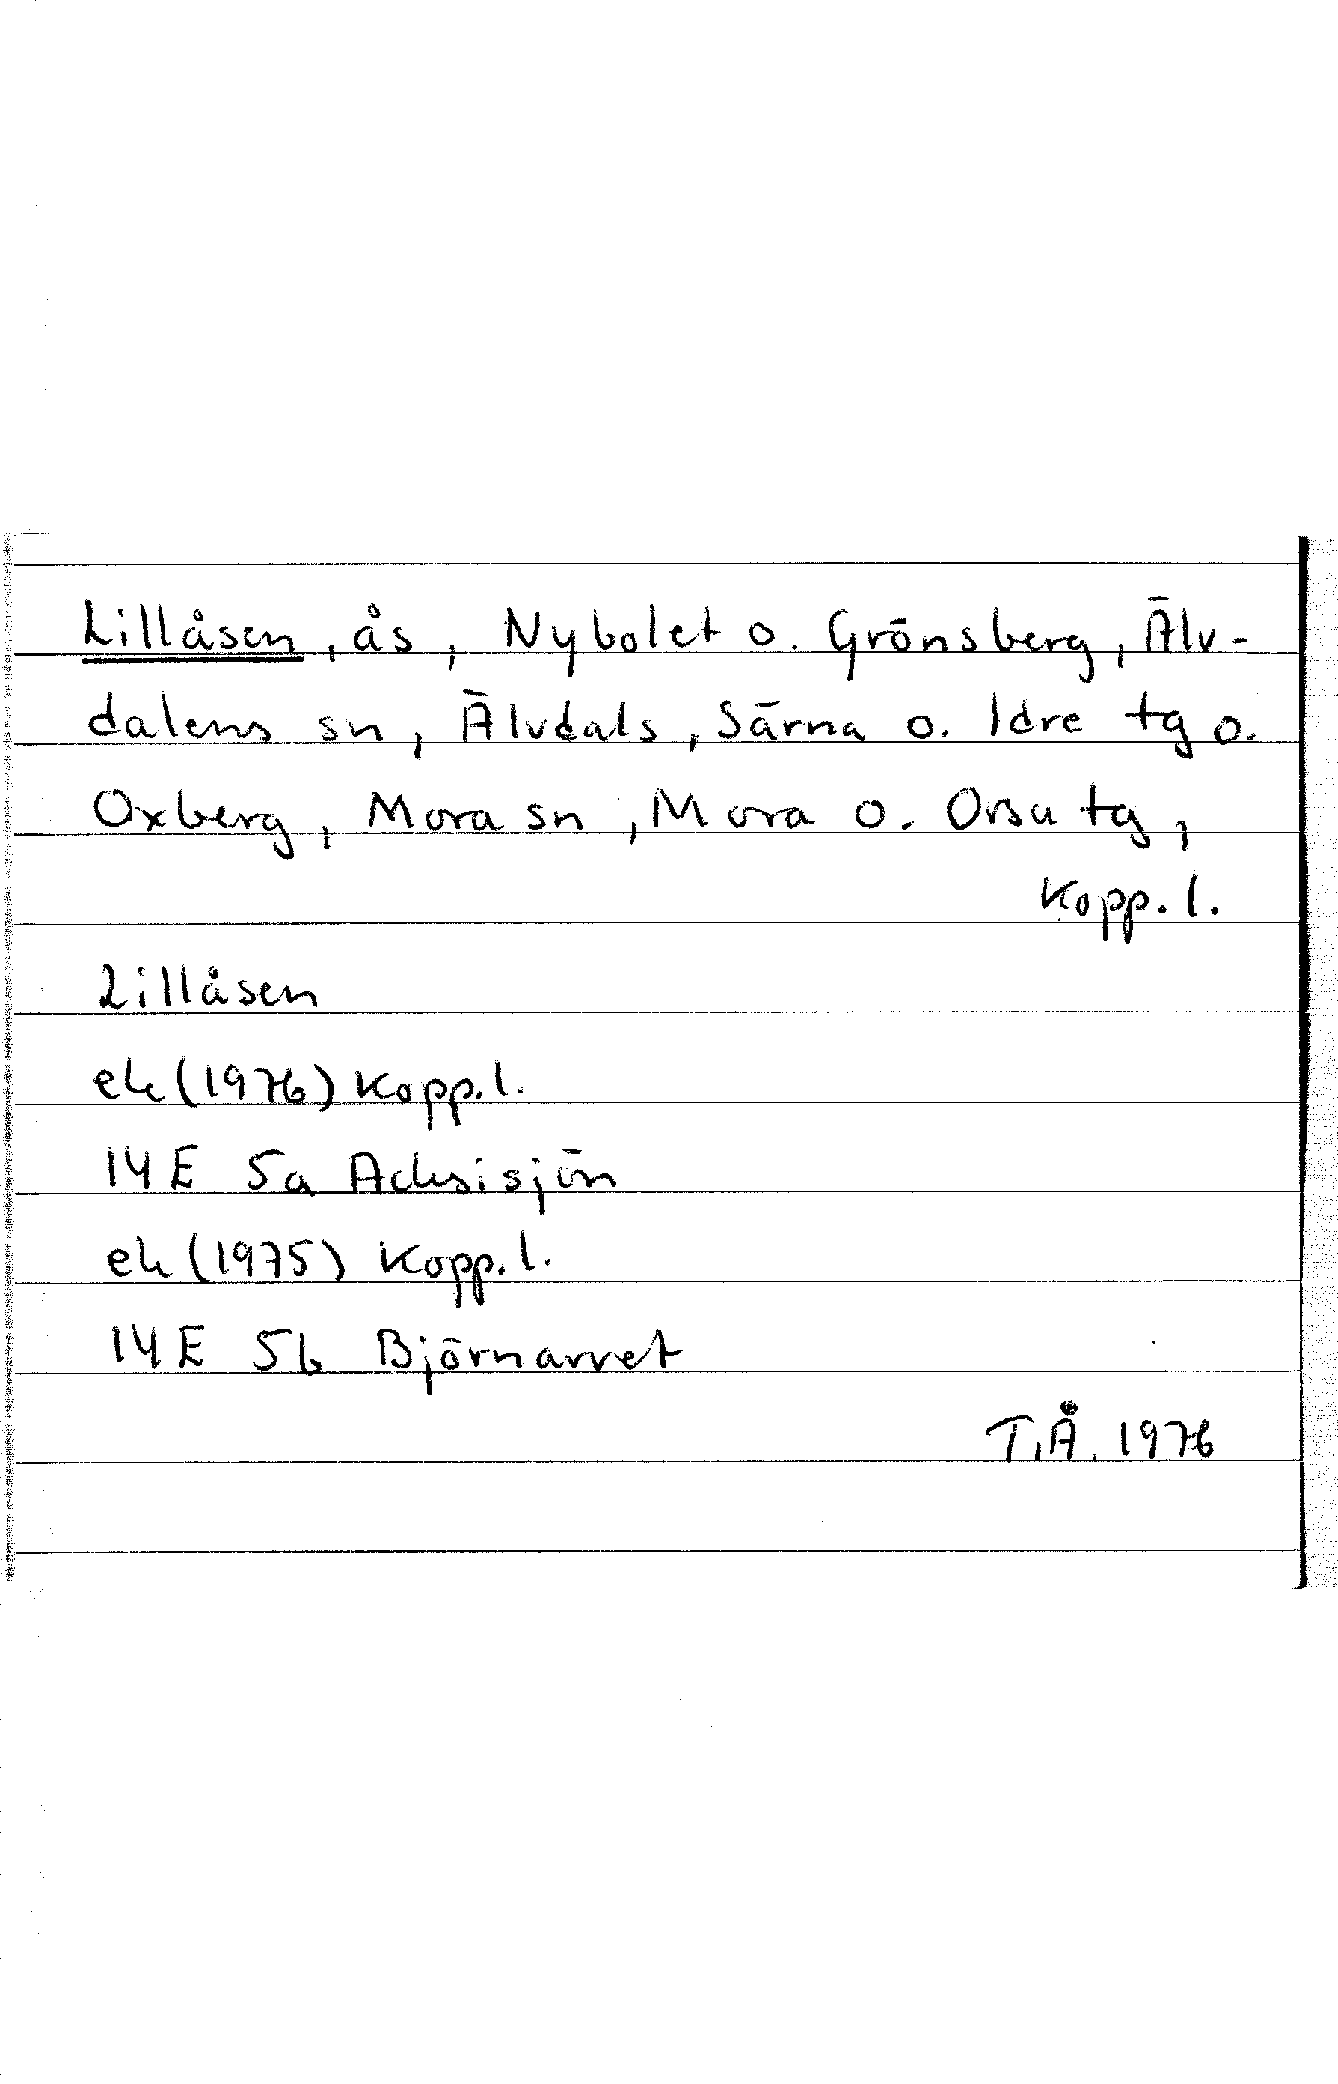 Lillåsen, ås, Nybolet o. Grönsberg, Älv-
dalens sn, Älvdals, Särna o. Idre tg o.
Oxberg, Mora sn, Mora o. Orsa tg,
Kopp. l.
Lillåsen
ek (1976) Kopp. l.
14E 5a Acksisjön
ek (1975) Kopp. l.
14E 5b Björnarvet
T.Å. 1976